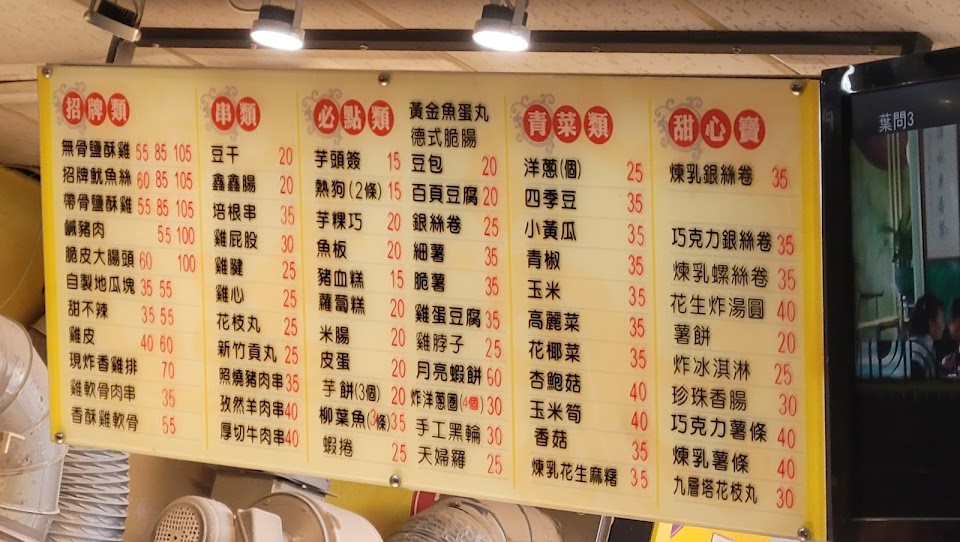 招牌類
無骨鹽酥雞 55 85 105
招牌魷魚絲 60 85 105
帶骨鹽酥雞 55 85 105
鹹豬肉 55 100
脆皮大腸頭 60 100
自製地瓜塊 35 55
甜不辣 35 55
雞皮 40 60
現炸香雞排 70
雞軟骨肉串 35
香酥雞軟骨 55
串類
豆干 20
鑫鑫腸 20
培根串 35
雞屁股 30
雞腱 25
雞心 25
花枝丸 25
新竹貢丸 25
照燒豬肉串 35
孜然羊肉串 40
厚切牛肉串 40
必點類
芋頭簽 15
熱狗(2條) 15
芋粿巧 20
魚板 20
豬血糕 15
蘿蔔糕 20
米腸 20
皮蛋 20
芋餅(3個) 20
柳葉魚(3條) 35
蝦捲 25
黃金魚蛋丸
德式脆腸
豆包 20
百頁豆腐 20
銀絲卷 25
細薯 35
脆薯 35
雞蛋豆腐 35
雞脖子 25
月亮蝦餅 60
炸洋蔥圈(4個) 30
手工黑輪 30
天婦羅 25
青菜類
洋蔥(個) 25
四季豆 35
小黃瓜 35
青椒 35
玉米 35
高麗菜 35
花椰菜 35
杏鮑菇 40
玉米筍 40
香菇 35
煉乳花生麻糬 35
甜心寶
煉乳銀絲卷 35
巧克力銀絲卷 35
煉乳螺絲卷 35
花生炸湯圓 40
薯餅 20
炸冰淇淋 25
珍珠香腸 30
巧克力薯條 40
煉乳薯條 40
九層塔花枝丸 30
葉問3